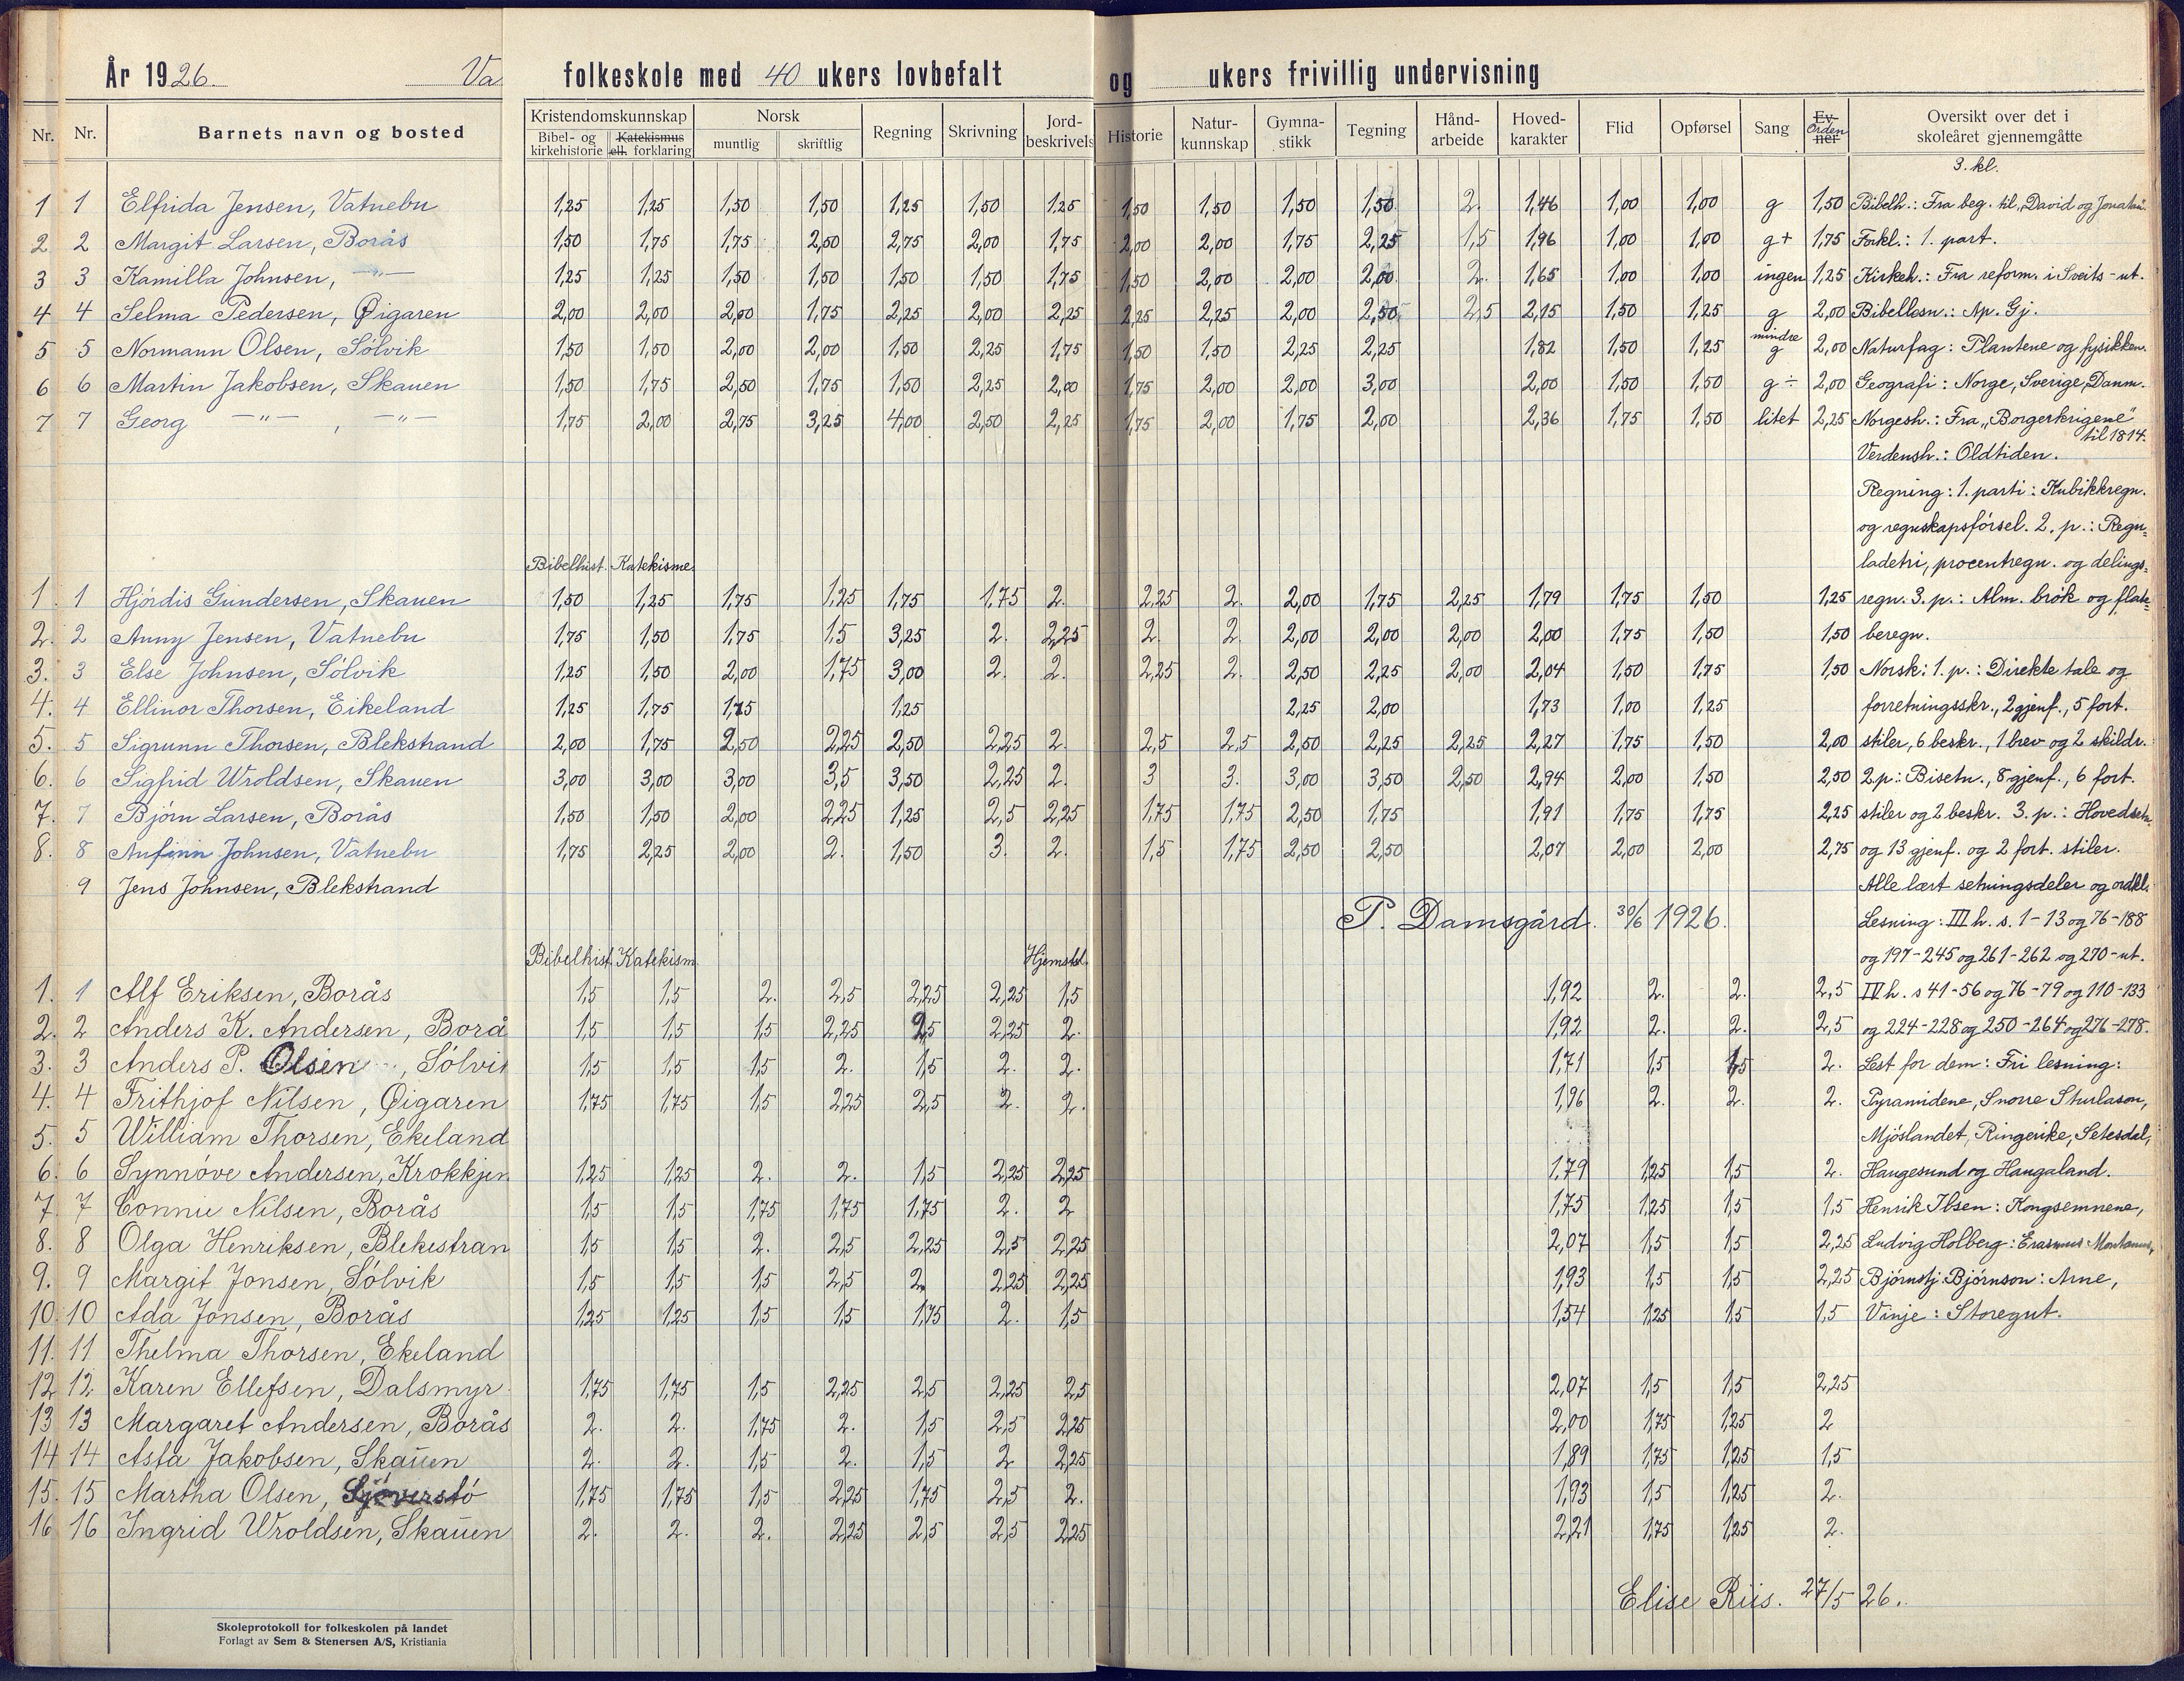 År 1926. Va folkeskole med 40 ukers lovbefalt og ukers frivillig undervisning
Nr. Nr. Barnets navn og bosted Kristendomskunnskap Bibel- og kirkehistorie Katekismus ell. forklaring Norsk muntlig skriftlig Regning Skrivning Jord-beskrivels Historie Natur-kunnskap Gymna-stikk Tegning Hånd-arbeide Hoved-karakter Flid Opførsel Sang Ev. Orden ner Oversikt over det i skoleåret gjennemgåtte
3. kl.
1 1 Elfrida Jensen, Vatnebu 1,25 1,25 1,50 1,50 1,25 1,50 1,25 1,50 1,50 1,50 1,50 2. 1,46 1,00 1,00 g 1,50 Bibelh.: Fra beg. til "David og Jonatan".
2 2 Margit Larsen, Borås 1,50 1,75 1,75 2,50 2,75 2,00 1,75 2,00 2,00 1,75 2,25 1,5 1,96 1,00 1,00 g+ 1,75 Forkl.: 1. part.
3 3 Kamilla Johnsen, —"— 1,25 1,25 1,50 1,50 1,50 1,50 1,75 1,50 2,00 2,00 2,00 2. 1,65 1,00 1,00 ingen 1,25 Kirkeh.: Fra reform. i Sveits - ut.
4 4 Selma Pedersen, Øigaren 2,00 2,00 2,00 1,75 2,25 2,00 2,25 2,25 2,25 2,00 2,50 2,5 2,15 1,50 1,25 g 2,00 Bibellesn.: Ap. Gj.
5 5 Normann Olsen, Sølvik 1,50 1,50 2,00 2,00 1,50 2,25 1,75 1,50 1,50 2,25 2,25 1,82 1,50 1,25 mindre g 2,00 Naturfag: Plantene og fysikken.
6 6 Martin Jakobsen, Skauen 1,50 1,75 2,50 1,75 1,50 2,25 2,00 1,75 2,00 2,00 3,00 2,00 1,50 1,50 g ÷ 2,00 Geografi: Norge, Sverige, Danm.
7 7 Georg —"— , —"— 1,75 2,00 2,75 3,25 4,00 2,50 2,25 1,75 2,00 1,75 2,00 2,36 1,75 1,50 litet 2,25 Norgesh.: Fra "Borgerkrigene" til 1814.
Verdensh.: Oldtiden.
Regning: 1. parti: Kubikkregn.
og regnskapsførsel. 2. p.: Regu-
Bibelhist. Katekisme. ladetri, procentregn. og delings-
1. 1 Hjørdis Gundersen, Skauen 1,50 1,25 1,75 1,25 1,75 1,75 2. 2,25 2. 2,00 1,75 2,25 1,79 1,75 1,50 1,25 regn. 3. p.: Alm. brøk og flate-
2. 2 Anny Jensen, Vatnebu 1,75 1,50 1,75 1,5 3,25 2. 2,25 2. 2. 2,00 2,00 2,00 2,00 1,75 1,50 1,50 beregn.
3. 3 Else Johnsen, Sølvik 1,25 1,50 2,00 1,75 3,00 2. 2. 2,25 2. 2,50 2,25 2,00 2,04 1,50 1,75 1,50 Norsk: 1. p.: Direkte tale og
4. 4 Ellinor Thorsen, Eikeland 1,25 1,75 1,75 1,25 2,25 2,00 1,73 1,00 1,25 forretningsskr., 2 gjenf., 5 fort.
5. 5 Sigrunn Thorsen, Blekstrand 2,00 1,75 2,50 2,25 2,50 2,25 2. 2,5 2,5 2,50 2,25 2,25 2,27 1,75 1,50 2,00 stiler, 6 beskr., 1 brev og 2 skildr.
6. 6 Sigfrid Wroldsen, Skauen 3,00 3,00 3,00 3,5 3,50 2,25 2. 3 3. 3,00 3,50 2,50 2,94 2,00 1,50 2,50 2.p: Bisetn., 8 gjenf., 6 fort.
7. 7 Bjørn Larsen, Borås 1,50 1,50 2,00 2,25 1,25 2,5 2,25 1,75 1,75 2,50 1,75 1,91 1,75 1,75 2,25 stiler og 2 beskr. 3. p.: Hovedsetn.
8. 8 Anfinn Johnsen, Vatnebu 1,75 2,25 2,00 2. 1,50 3. 2. 1,5 1,75 2,50 2,50 2,07 2,00 2,00 2,75 og 13 gjenf. og 2 fort. stiler.
9 Jens Johnsen, Blekstrand Alle lært setningsdeler og ordkl.
P. Damsgård. 30/6 1926. Lesning: III h. s. 1-13 og 76-188
Bibelhist. Katekism. Hjemstd. og 197-245 og 261-262 og 270-ut.
1. 1 Alf Eriksen, Borås 1,5 1,5 2. 2,5 2,25 2,25 1,5 1,92 2. 2. 2,5 IV h. s 41-56 og 76-79 og 110-133
2. 2 Anders K. Andersen, Borå 1,5 1,5 1,5 2,25 2,5 2,25 2. 1,92 2. 2. 2,5 og 224-228 og 250-264 og 276-278.
3. 3 Anders P. Olsen, Sølvi 1,5 1,5 1,5 2. 1,5 2. 2. 1,71 1,5 1,5 2. Lest for dem: Fri lesning:
4. 4 Frithjof Nilsen, Øigaren 1,75 1,75 1,5 2,25 2,5 2. 2. 1,96 2. 2. 2. Pyramidene, Snorre Sturlason,
5. 5 William Thorsen, Ekeland Mjøslandet, Ringerike, Setesdal,
6. 6 Synnøve Andersen, Krokkjen 1,25 1,25 2. 2. 1,5 2,25 2,25 1,79 1,25 1,5 2. Haugesund og Haugaland.
7. 7 Connie Nilsen, Borås 1,5 1,5 1,75 1,75 1,75 2. 2 1,75 1,25 1,5 1,5 Henrik Ibsen: Kongsemnene,
8. 8 Olga Henriksen, Blekestran 1,5 1,5 2. 2,5 2,25 2,5 2,25 2,07 1,5 1,5 2,25 Ludvig Holberg: Erasmus Montanus,
9. 9 Margit Jonsen, Sølvik 1,5 1,5 1,5 2,5 2. 2,25 2,25 1,93 1,5 1,5 2,25 Bjørnstj. Bjørnson: Arne,
10. 10 Ada Jonsen, Borås 1,25 1,25 1,5 1,5 1,75 2. 1,5 1,54 1,25 1,5 1,5 Vinje: Storegut.
11. 11 Thelma Thorsen, Ekeland
12 12 Karen Ellefsen, Dalsmyr 1,75 1,75 1,5 2,25 2,5 2,25 2,5 2,07 1,5 1,5 2,25
13 13 Margaret Andersen, Borås 2. 2. 1,75 2. 1,5 2,5 2,25 2,00 1,75 1,25 2
14 14 Asta Jakobsen, Skauen 2. 2. 1,5 2. 1,5 2 2,25 1,89 1,75 1,25 1,5
15. 15 Martha Olsen, Sjøverstø 1,75 1,75 1,5 2,25 1,75 2,5 2. 1,93 1,5 1,25 2.
16 16 Ingrid Wroldsen, Skauen 2. 2. 2. 2,25 2,5 2,5 2,25 2,21 1,75 1,25 2.
Elise Riis. 27/5 26.
Skoleprotokoll for folkeskolen på landet
Forlagt av Sem & Stenersen A/S, Kristiania